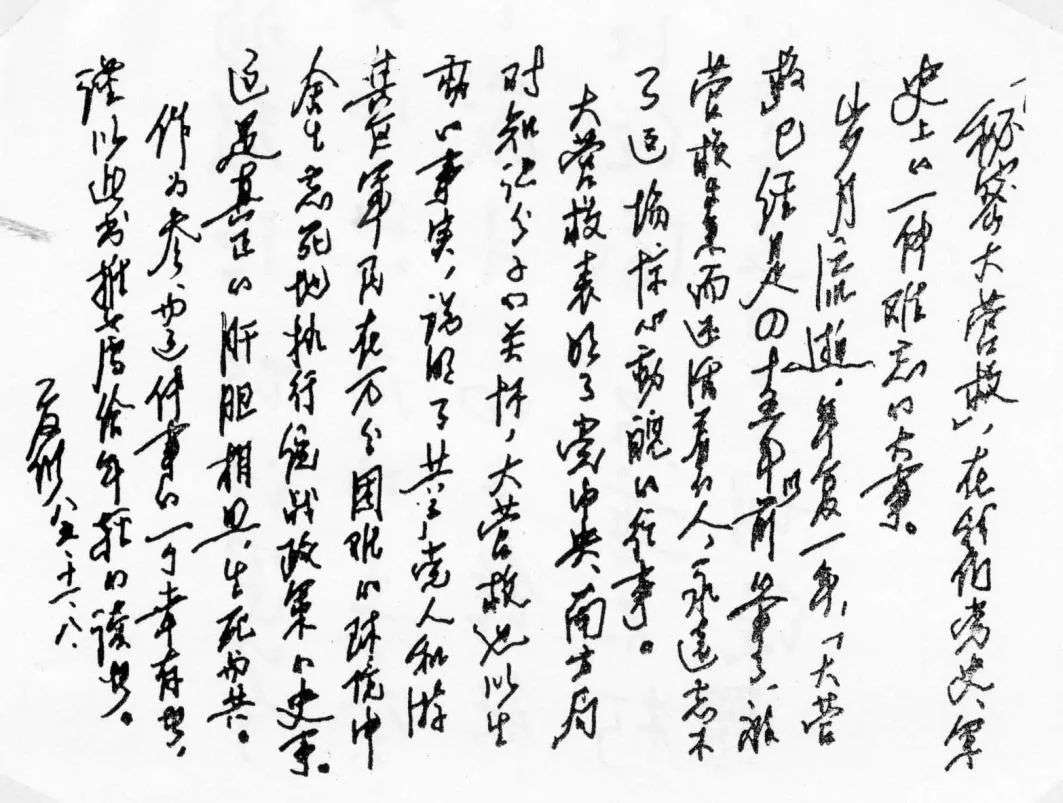 「秘密大营救」，在我们党史、军
史上的一件难忘的大事。
岁月流逝，年复一年，「大营
救」已经是四十五年前的事了，被
营救出来而还活着的人，永远忘不
了这场惊心动魄的往事。
大营救表明了党中央、南方局
对知识分子的关怀，大营救也以生
动的事实，说明了共产党人和游
击区军民在万分困难的环境中
舍生忘死地执行统战政策的史事。
这是真正的肝胆相照，生死与共。
作为参与这件事的一个幸存者，
谨以此书推荐给年轻的读者。
夏衍 八五、十一、八、